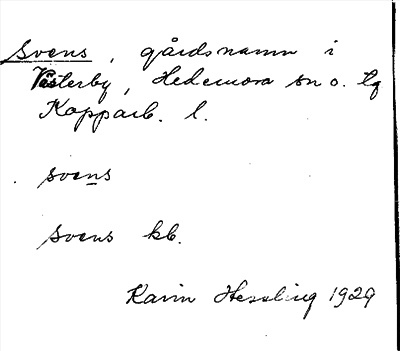 Svens, gårdsnamn i
Västerby, Hedemora sn o. tg
Kopparb. l.
svens
svens kb.
Karin Hessling 1929